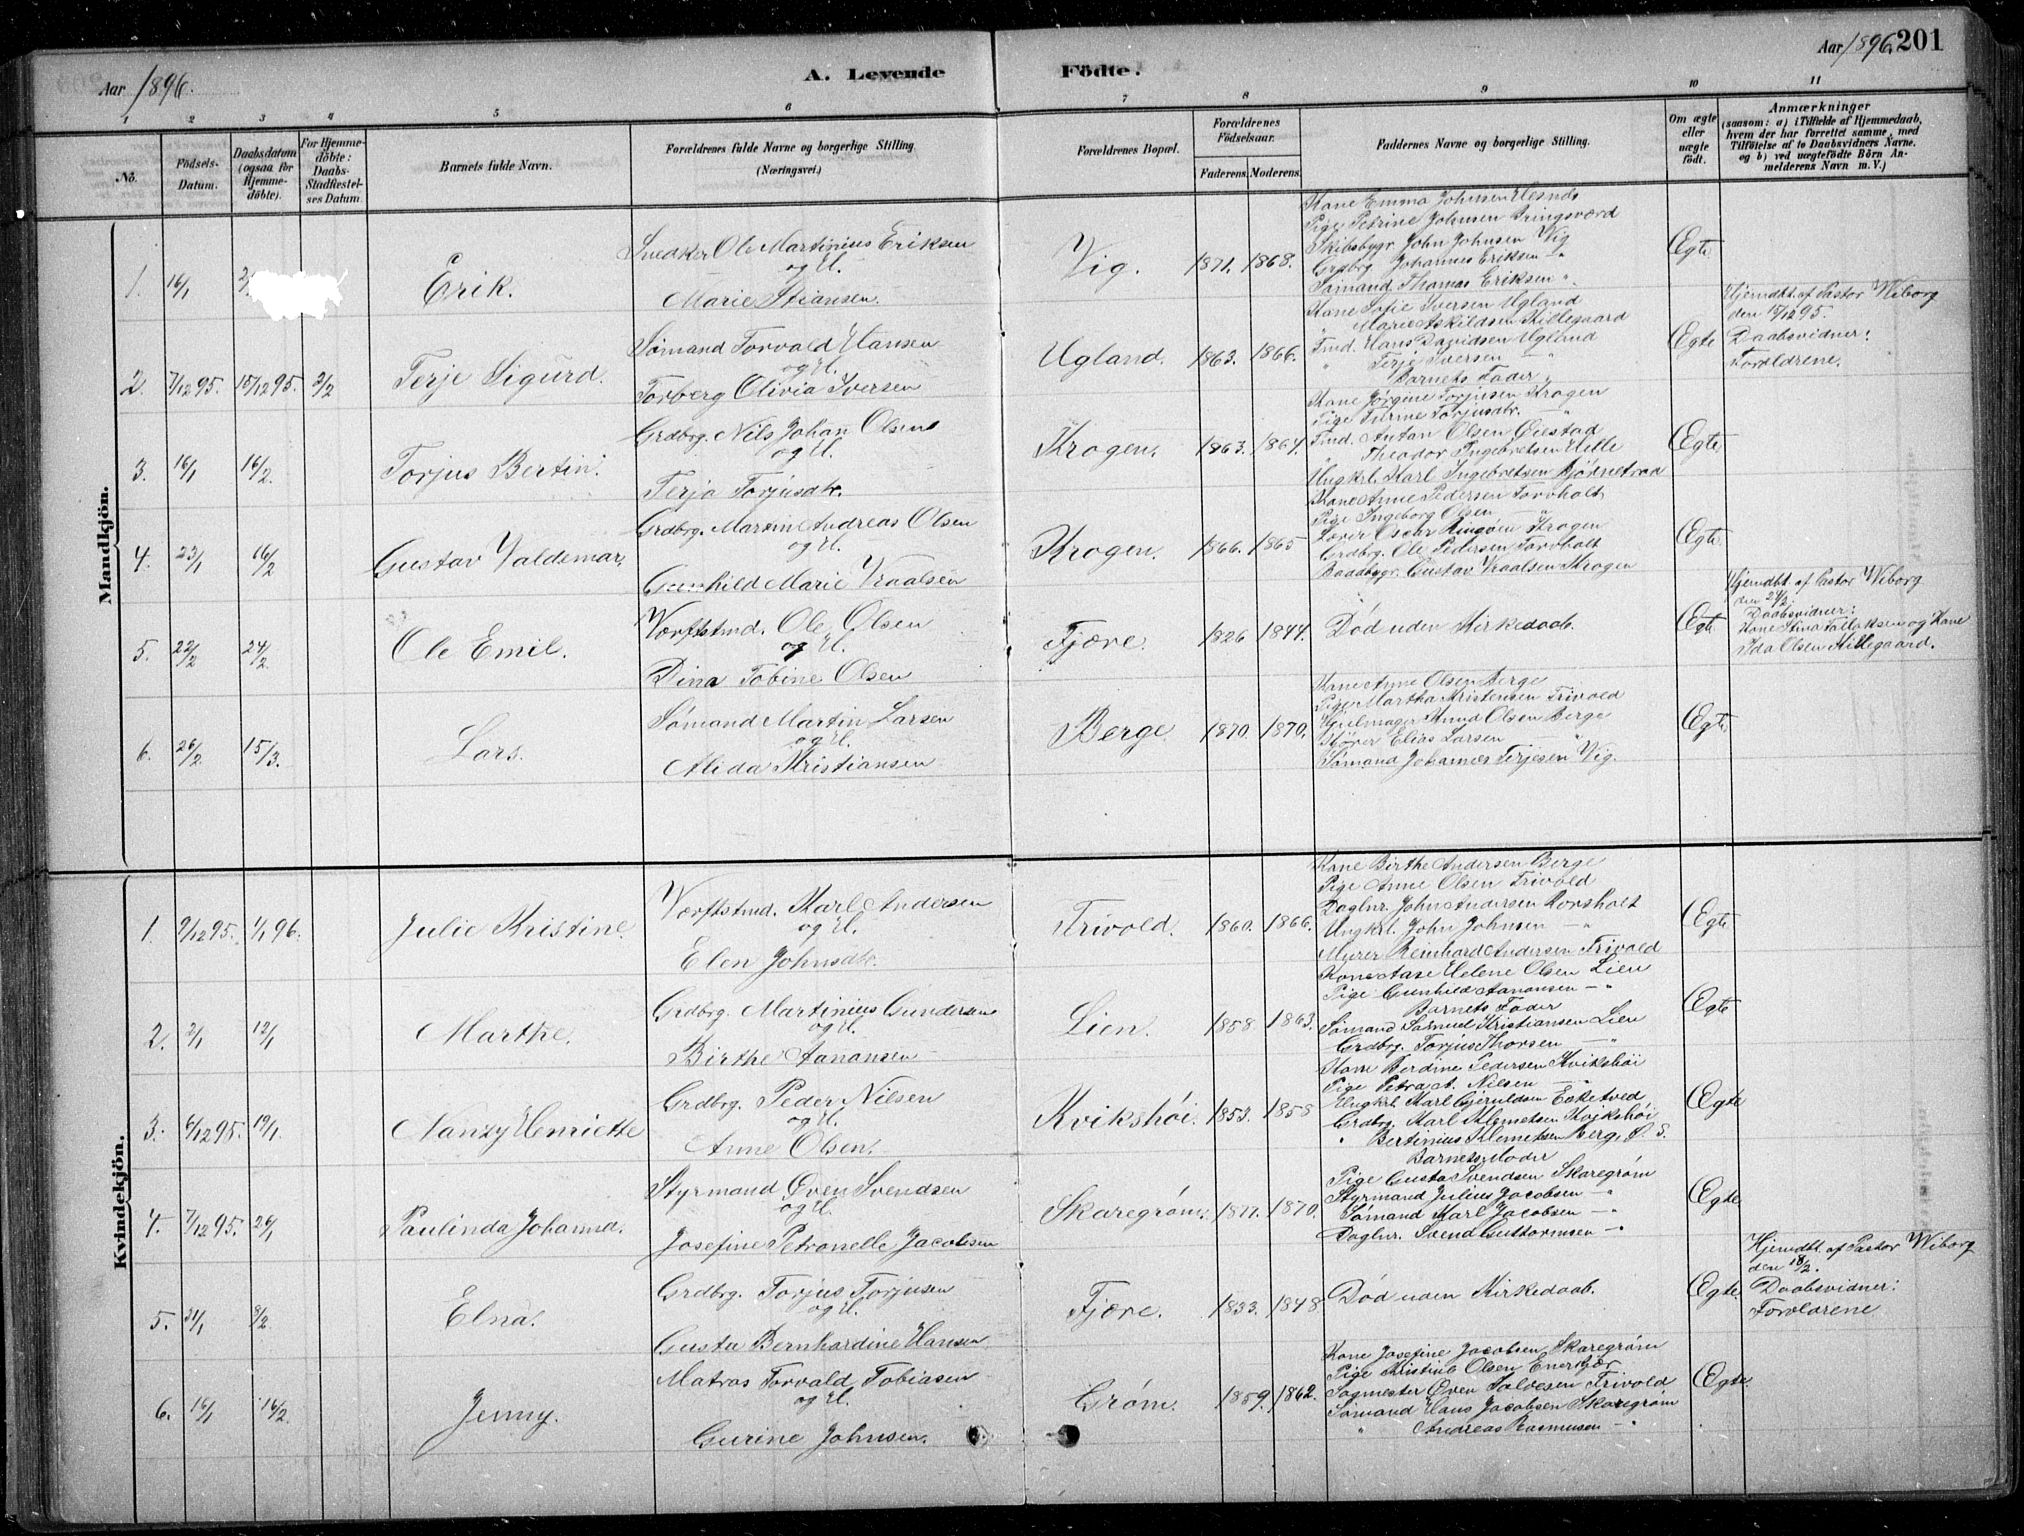 Aar 1896.
A. Levende Födte.
Aar 1896. 201
1 2 3 4 5 6 7 8 9 10 11
No.
Födsels-Datum.
Daabsdatum (ogsaa for Hjemme-döbte).
For Hjemme-döbte: Daabs-Stadfæstel-ses Datum.
Barnets fulde Navn.
Forældrenes fulde Navne og borgerlige Stilling. (Næringsvei.)
Forældrenes Bopæl.
Forældrenes Födselsaar.
Faderens. Moderens.
Faddernes Navne og borgerlige Stilling.
Om ægte eller uægte födt.
Anmærkninger
(saasom: a) i Tilfælde af Hjemmedaab, hvem der har forrettet samme, med Tilföielse af to Daabsvidners Navne. og b) ved uægtefödte Börn An-melderens Navn m. V.)
Mandkjön.
1. 16/1 2/
Erik.
Snedker Ole Martinius Eriksen
og H.
Marie Stiansen.
Vig. 1871. 1868.
Kone Emma Johnsen Hesnes
Pige Petrine Johnsen Bringsværd
Skibsbygr. John Johnsen Vig
Grdbrg. Johannes Eriksen "
Sømand Thomas Eriksen "
Egte
2. 7/12 95. 15/12 95. 2/2
Terje Sigurd.
Sømand Torvald Hansen
og H.
Torberg Olivia Iversen
Ugland. 1863. 1866.
Kone Sofie Iversen Ugland
Marie Askildsen Hillegaard
Tmd. Hans Davidsen Ugland
" Terje Iversen "
Barnets Fader
Egte
Hjemdbt. af Pastor Wiborg
den 15/12 95.
Daabsvidner:
Forældrene.
3. 16/1 16/2
Torjus Bertin.
Grdbrg. Nils Johan Olsen
og H.
Terja Torjusdtr.
Krogen. 1863. 1864.
Kone Jørgine Torjusen Krogen
Pige Turine Torjusdtr. "
Tmd. Antan Olsen Øiestad
" Theodor Ingebretsen Hille
Ungkrl. Karl Ingebretsen Bjørnetraa
Egte
4. 23/1 16/2
Gustav Valdemar.
Grdbrg. Martin Andreas Olsen
og H.
Gunhild Marie Vraalsen
Krogen. 1866. 1865
Kone Anne Pedersen Torvholt
Pige Ingeborg Olsen "
Oscar Ringøen Krogen
Grdbrg. Ole Pedersen Torvholt
Baadbygr. Gustav Vraalsen Krogen
Egte
5. 22/2 24/2
Ole Emil.
Værftstmd. Ole Olsen
og H.
Dina Tobine Olsen
Fjære. 1826 1844.
Død uden Kirkedaab.
Egte
Hjemdbt. af Pastor Wiborg
den 24/2.
Daabsvidner:
Kone Stina Tallaksen og Kone
Ida Olsen Hillegaard.
6. 26/2 15/3.
Lars.
Sømand Martin Larsen
og H.
Alida Kristiansen
Berge. 1870. 1870.
Kone Anne Olsen Berge
Pige Martha Kristensen Trivold
Hjulmager Knud Olsen Berge
Kjører Elias Larsen "
Sømand Johannes Terjesen Vig.
Egte
Kvindekjön.
1. 9/12 95. 1/1 96.
Julie Kristine.
Værftstmd. Karl Andersen
og H.
Elen Johnsdtr.
Trivold. 1860. 1866.
Kone Birthe Andersen Berge
Pige Anne Olsen Trivold
Daglnr. John Andersen Rorsholt
Ungkrl. John Johnsen "
Murer Reinhard Andersen Trivold
Egte
2. 2/1 12/1
Marthe.
Grdbrg. Martinius Gundersen
og H.
Birthe Aanonsen
Lien. 1858. 1863.
Kone Aase Helene Olsen Lien
Pige Gunhild Aanonsen "
Barnets Fader
Sømand Samuel Kristiansen Lien
Grdbrg. Torjus Thorsen "
Egte
3. 6/12 95. 19/1
Nanzy Henriette
Grdbrg. Peder Nilsen
og H.
Anne Olsen.
Kvikshöi. 1853. 1858
Kone Berdine Pedersen Kvikshöi
Pige Petra A. Nilsen "
Ungkrl. Karl Gjeruldsen Eeketved
Grdbrg. Karl Klemetsen Kvikshöi
" Bertinius Klemetsen Berg, Ø. S.
Egte
4. 7/12 95. 26/1
Paulinda Johanna.
Styrmand Oven Svendsen
og H.
Josefine Petronelle Jacobsen
Skaregrøm. 1871. 1870.
Barnets Moder
Pige Gusta Svendsen Skaregrøm
Styrmand Julius Jacobsen "
Sømand Karl Jacobsen "
Daglnr. Svend Guttormsen "
Egte
5. 31/1 8/2
Elna.
Grdbrg. Torjus Torjusen
og H.
Gusta Bernhardine Hansen
Fjære. 1833. 1848.
Død uden Kirkedaab.
Egte.
Hjemdbt. af Pastor Wiborg
den 18/2.
Daabsvidner:
Forældrene
6. 16/1 16/2
Jenny.
Matros Torvald Tobiasen
og H.
Gurine Johnsen.
Grøm. 1859. 1862.
Kone Josefine Jacobsen Skaregrøm
Pige Kristine Olsen Enerkjær
Sagmester Oven Salvesen Trivold
Sømand Hans Jacobsen Skaregrøm
" Andreas Rasmusen "
Egte.